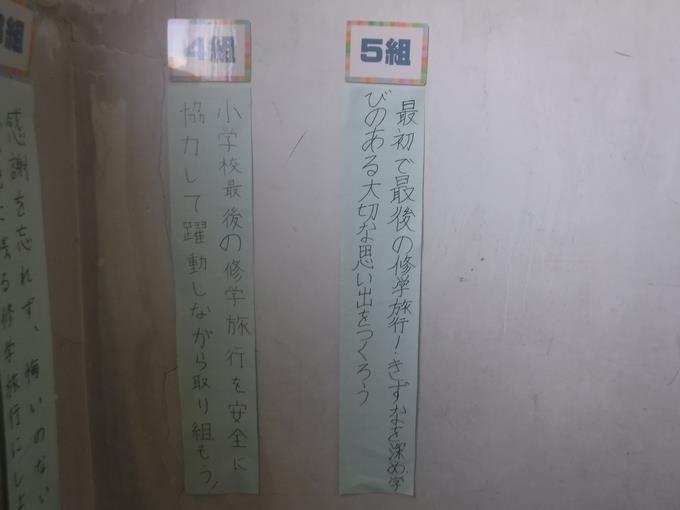 5組
最初で最後の修学旅行！きずなを深め、学
びのある大切な思い出をつくろう
4組
小学校最後の修学旅行を安全に
協力して躍動しながら取り組もう！
組
感謝を忘れず、悔いのない
る修学旅行にしよ